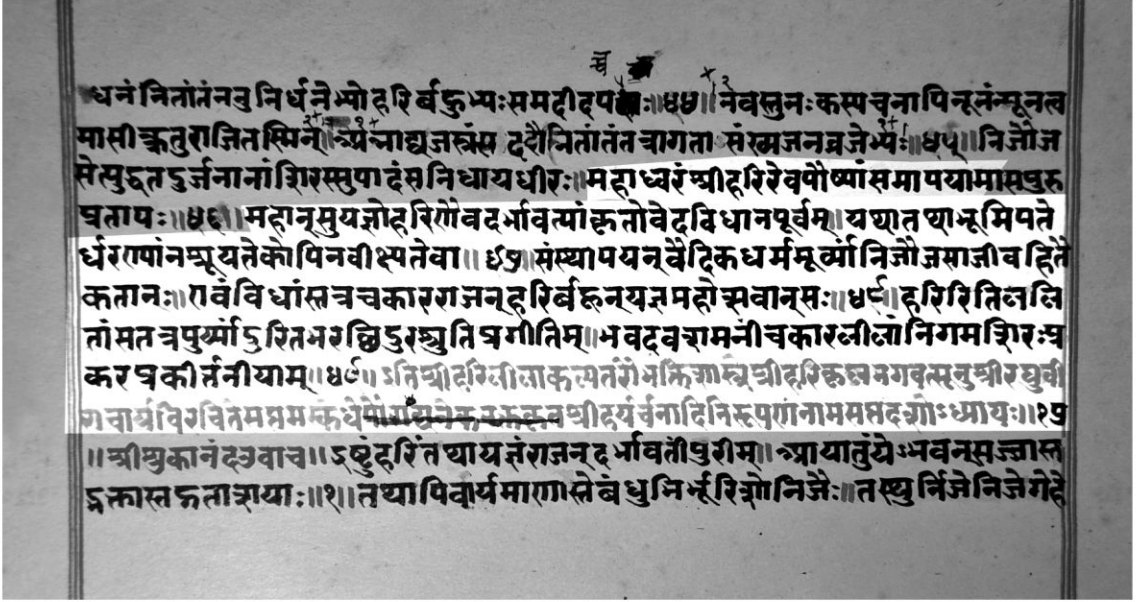 धनं नितांतं ननु निर्धनेभ्यो हरिर्बहुभ्यः समदीदप ः ॥५४॥ नैवस्तुनः कस्य च नापि नूनं न्यूनत्व
मासीत्क्रतुराजि तस्मिन्॥ अन्नाद्यजस्रं स ददौ नितांतं तत्रागता संख्यजनव्रजेभ्यः॥५५॥ निजौज
सेत्युद्धतदुर्जनानां शिरस्सु पादं स निधाय धीरः॥ महाध्वरं श्रीहरिरेव पौष्यां समापयामास पुरु
प्रतापः॥५६॥ महान्सुयज्ञो हरिणैव दर्भावत्यां कृतो वेदविधानपूर्वम्॥ यथा तथा भूमिपते
र्धरण्यां न श्रूयते कोपि न वीक्ष्यते वा॥५७॥ संस्थापयन्वैदिकधर्ममूर्व्यां निजौजसा जीवहितै
कतानः॥ एवंविधांस्तत्र चकार राजन् हरिर्बहून्यज्ञमहोत्सवान्सः॥५८॥ हरिरिति ललि
तां स तत्र पुर्य्यां दुरितभरच्छिदुरश्रुतिप्रगीतिम्॥ भवदवशमनीं चकार लीलां निगमशिरःप्र
करप्रकीर्तनीयाम्॥५९॥ इति श्रीहरिलीलाकल्पतरौ भक्तिशास्त्रे श्रीहरिकृष्णभगवत्सूनुश्रीरघुवी
राचार्यविरचिते सप्तमस्कंधे श्रीहर्यर्चनादिनिरूपणंनाम सप्तदशोऽध्यायः॥१७
॥श्रीशुकानंद उवाच॥ द्रष्टुं हरिं तथा यज्ञं राजन् दर्भावतीं पुरीम्॥ आयातुं येऽभवन्सज्जास्त
द्भक्तास्तद्गताशयाः॥१॥ तथापि वार्यमाणास्ते बंधुभिर्भूरिशो निजैः॥ तस्थुर्निजे निजे गेहे